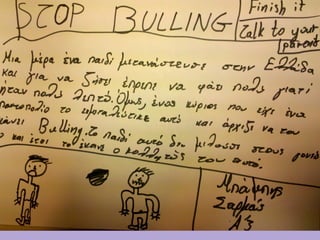 STOP BULLING
Finish it
talk to your
parents
Μια μέρα ένα παιδί μετανάστευσε στην Ελλάδα
και για να ζήσει έπρεπε να φάει πολύ γιατί
ήταν πολύ λεπτό. Όμως, ένας κύριος που είχε ένα
το εκμεταλλεύτηκε αυτό και άρχιζε να του
κάνει Bulling. Το παιδί αυτό δεν μιλούσε στους γονείς
και έτσι το έκανε ο κολλητός του αυτό.
Μπάμπης
Σαρμάς